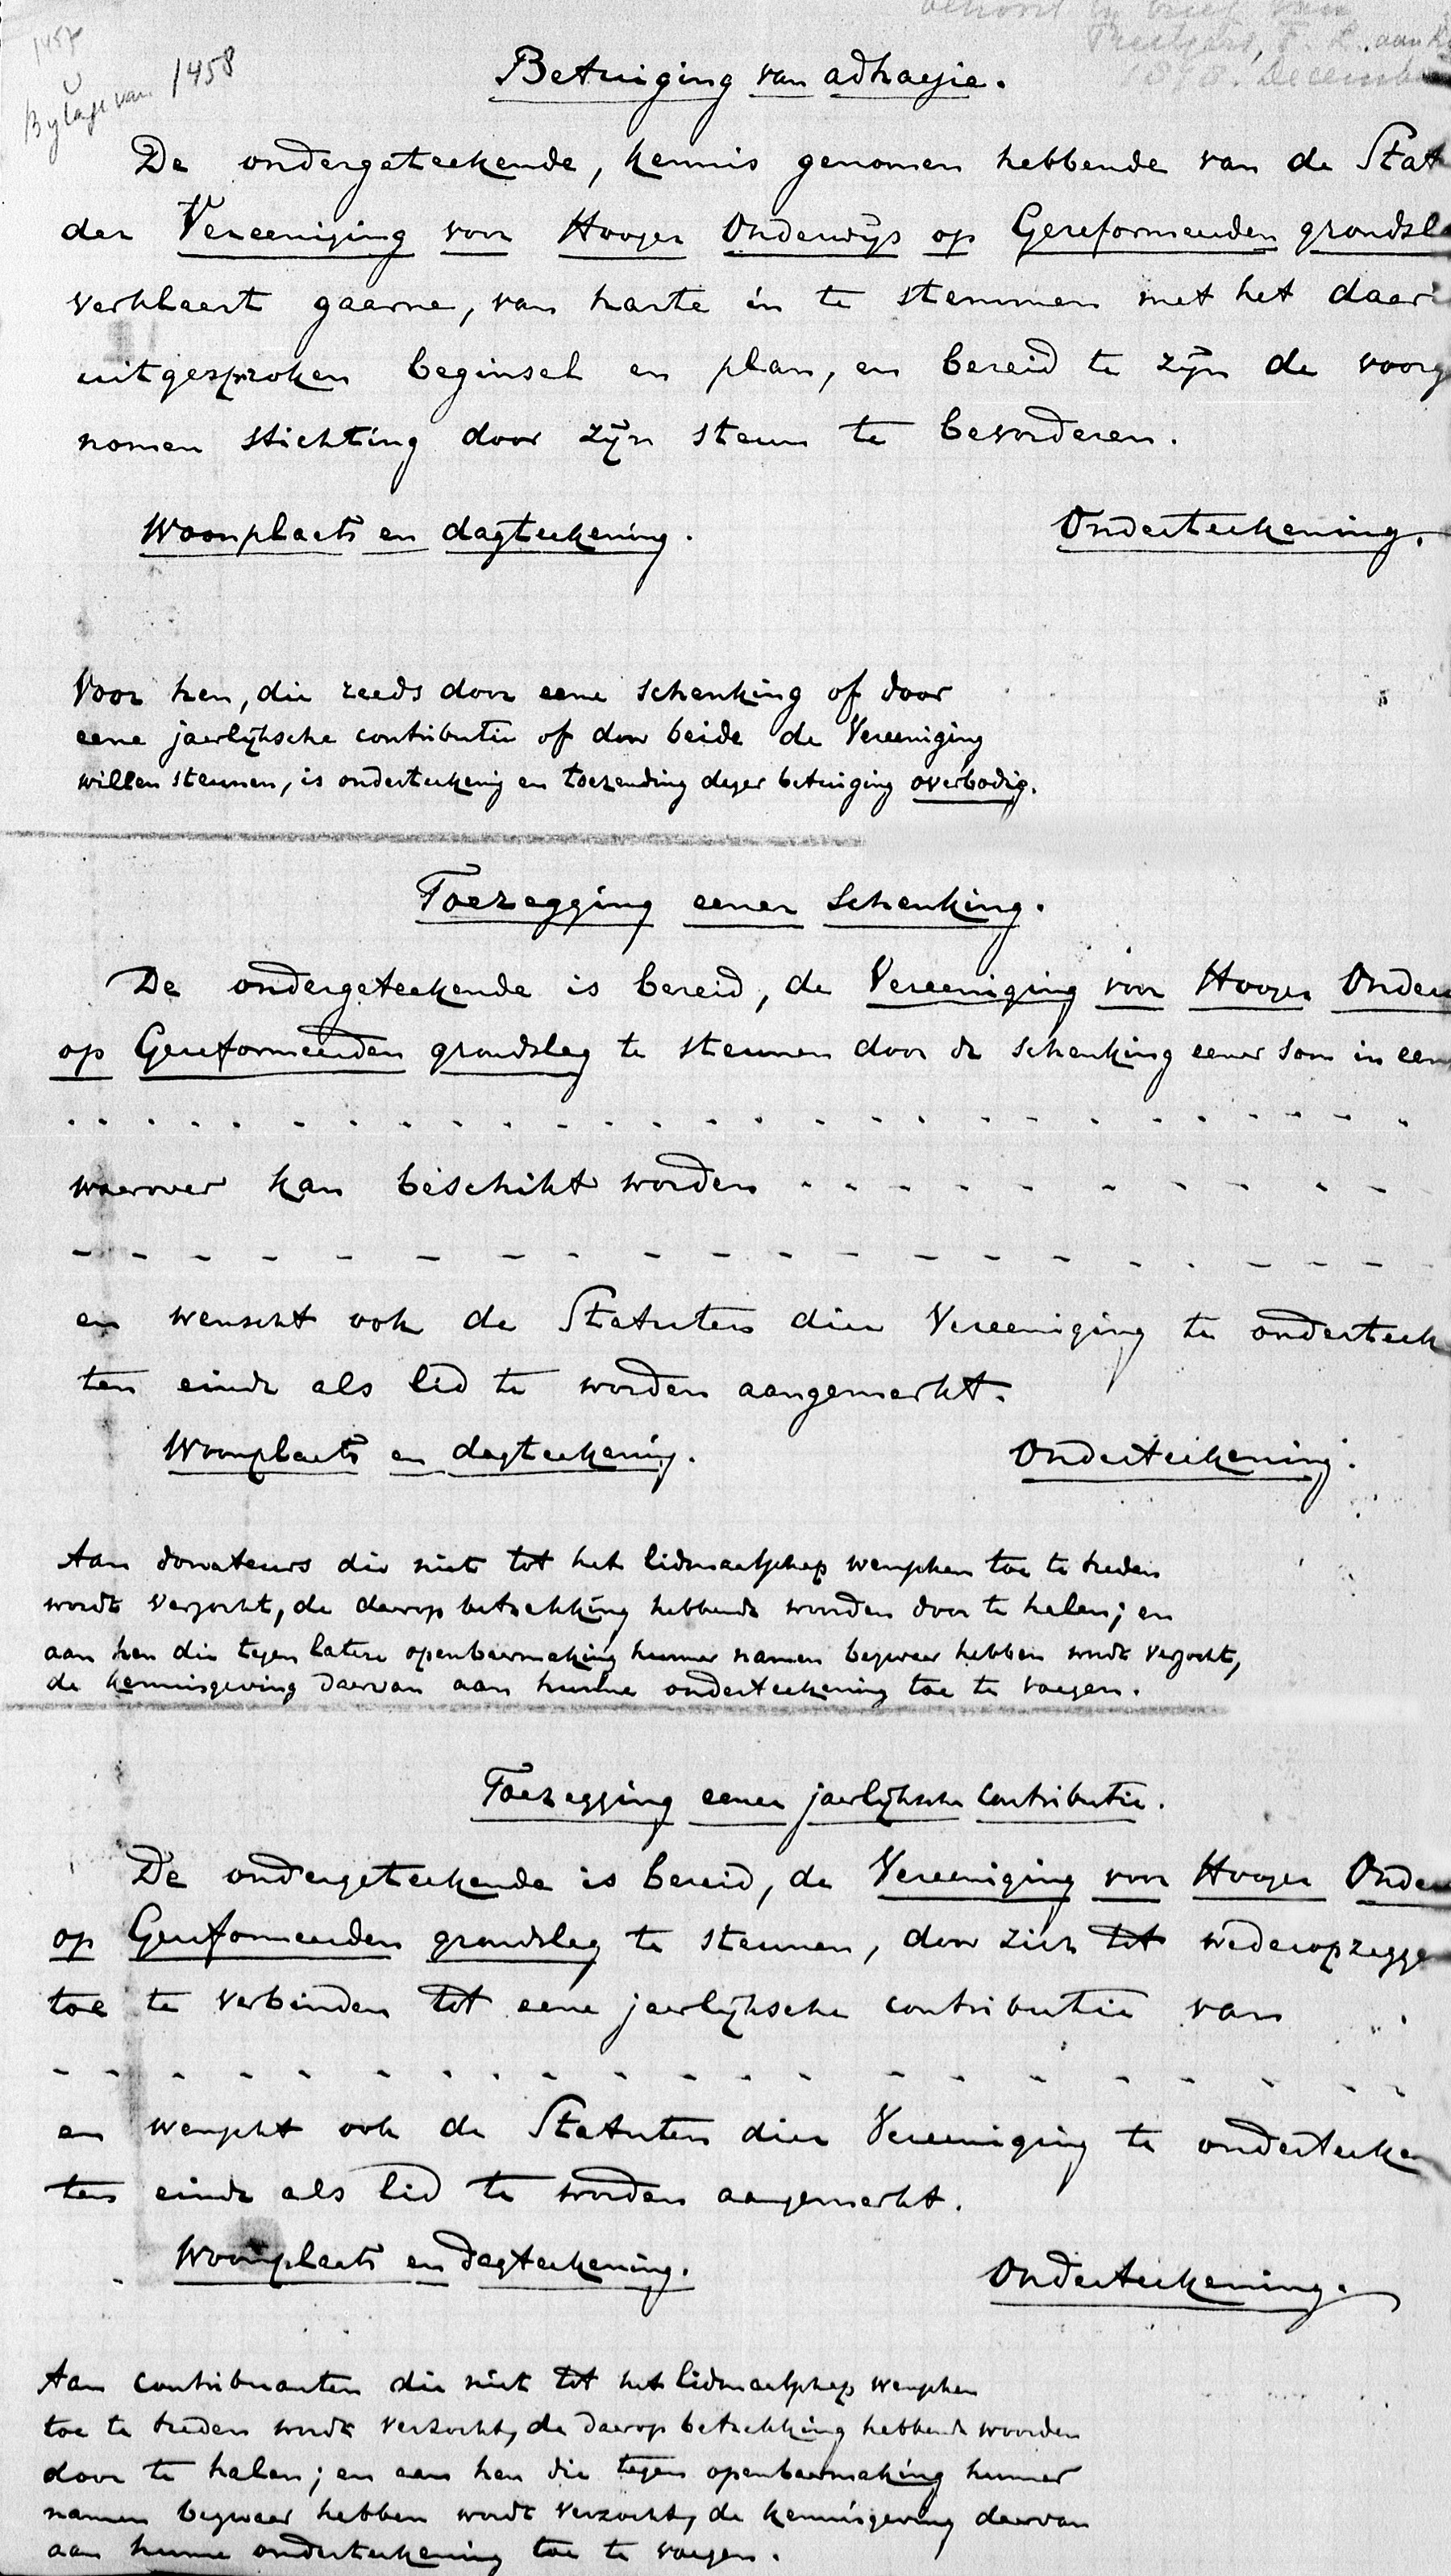 behoort bij brief van
Rutgers, F. L. aan K
1878. Decemb
1457
Bylage van 1458
Betuiging van adhaesie.
De ondergeteekende, kennis genomen hebbende van de Stat
der Vereeniging voor Hooger Onderwijs op Gereformeerden grondsla
verklaart gaarne, van harte in te stemmen met het daari
uitgesproken beginsel en plan, en bereid te zijn de voorg
nomen stichting door zijn steun te bevorderen.
Woonplaats en dagteekening. Onderteekening.
Voor hen, die reeds door eene schenking of door
eene jaarlijksche contributie of door beide de Vereeniging
willen steunen, is onderteekening en toezending dezer betuiging overbodig.
Toezegging eener schenking.
De ondergeteekende is bereid, de Vereeniging voor Hooger Onder
op Gereformeerden grondslag te steunen door de schenking eener som in een
waarover kan beschikt worden
en wenscht ook de Statuten dier Vereeniging te onderteek
ten einde als lid te worden aangemerkt.
Woonplaats en dagteekening. Onderteekening.
Aan donateurs die niet tot het lidmaatschap wenschen toe te treden
wordt verzocht, de daarop betrekking hebbende woorden door te halen; en
aan hen die tegen latere openbaarmaking hunner namen bezwaar hebben wordt verzocht,
de kennisgeving daarvan aan hunne onderteekening toe te voegen.
Toezegging eener jaarlijksche contributie.
De ondergeteekende is bereid, de Vereeniging voor Hooger Onder
op Gereformeerden grondslag te steunen, door zich tot wederopzegge
toe te verbinden tot eene jaarlijksche contributie van
en wenscht ook de Statuten dier Vereeniging te onderteeken
ten einde als lid te worden aangemerkt.
Woonplaats en dagteekening. Onderteekening.
Aan contribuanten die niet tot het lidmaatschap wenschen
toe te treden wordt verzocht, de daarop betrekking hebbende woorden
door te halen; en aan hen die tegen openbaarmaking hunner
namen bezwaar hebben wordt verzocht, de kennisgeving daarvan
aan hunne onderteekening toe te voegen.